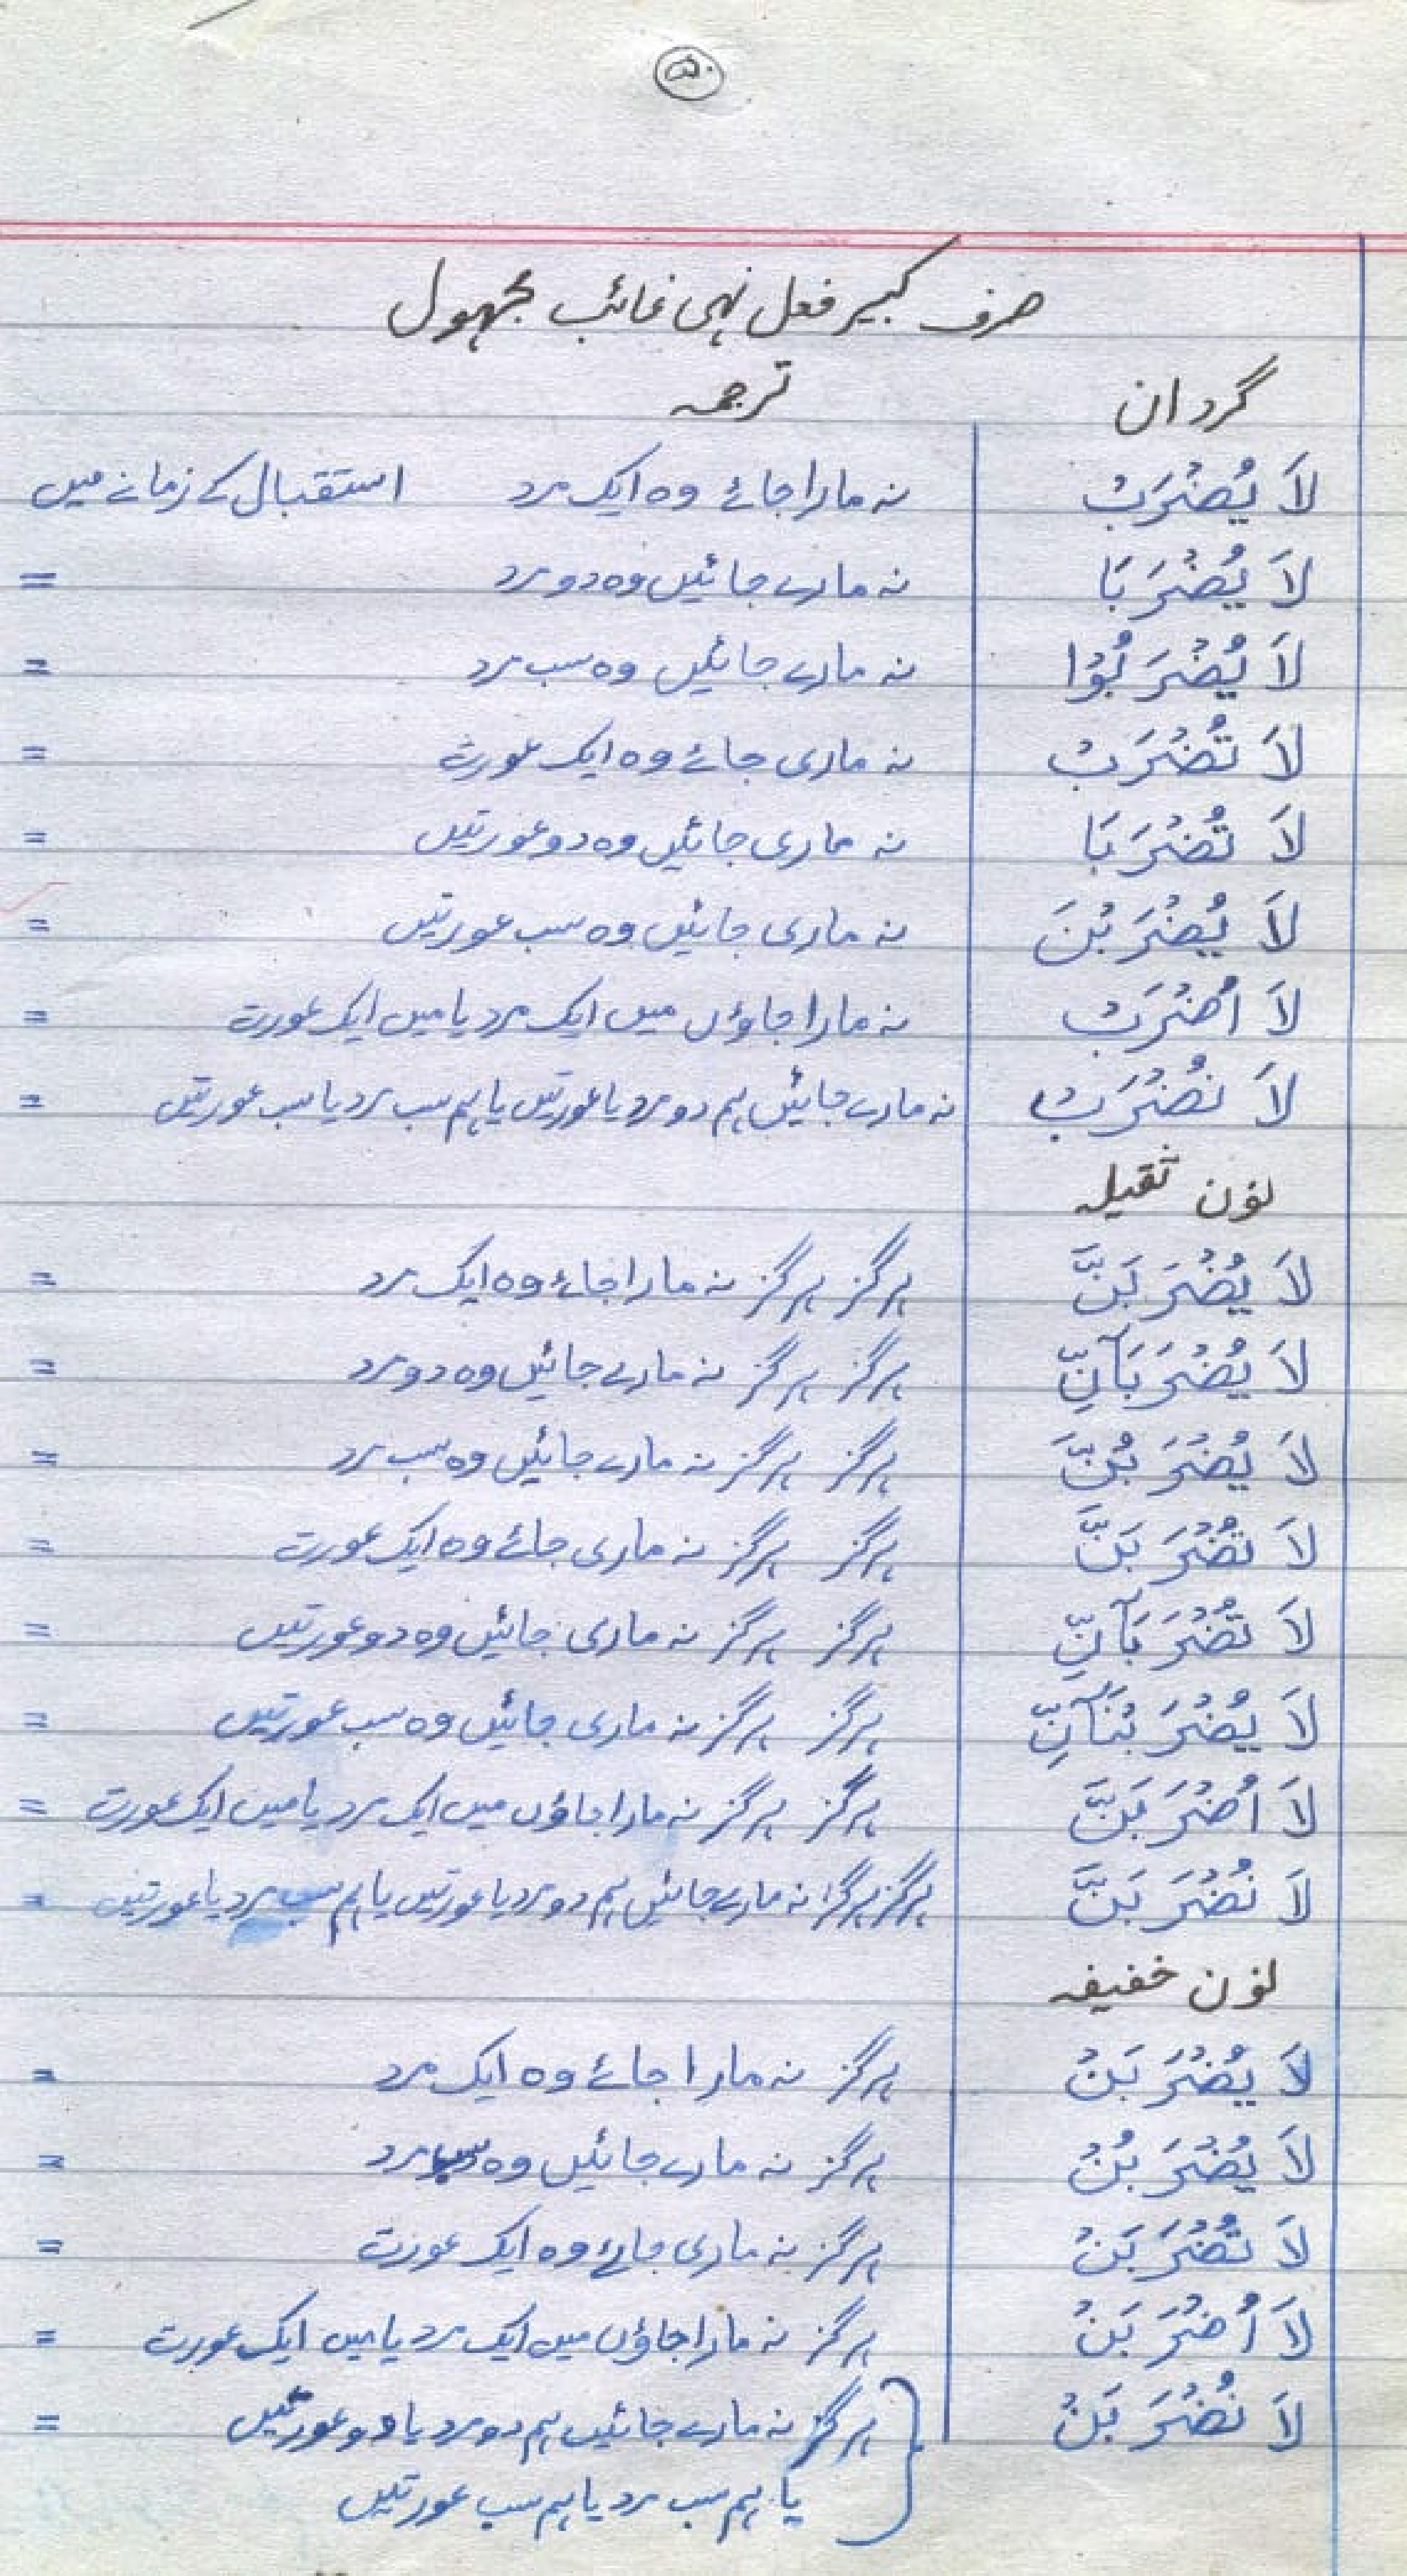 ۵۰
صرف کبیر فعل نہی غائب مجہول
گردان ترجمہ
لَا يُضْرَبْ نہ مارا جائے وہ ایک مرد استقبال کے زمانے میں
لَا يُضْرَبَا نہ مارے جائیں وہ دو مرد =
لَا يُضْرَبُوْا نہ مارے جائیں وہ سب مرد =
لَا تُضْرَبْ نہ ماری جائے وہ ایک عورت =
لَا تُضْرَبَا نہ ماری جائیں وہ دو عورتیں =
لَا يُضْرَبْنَ نہ ماری جائیں وہ سب عورتیں =
لَا أُضْرَبْ نہ مارا جاؤں میں ایک مرد یا میں ایک عورت =
لَا نُضْرَبْ نہ مارے جائیں ہم دو مرد یا عورتیں یا ہم سب مرد یا سب عورتیں =
نون ثقیلہ
لَا يُضْرَبَنَّ ہرگز ہرگز نہ مارا جائے وہ ایک مرد =
لَا يُضْرَبَآنِّ ہرگز ہرگز نہ مارے جائیں وہ دو مرد =
لَا يُضْرَبُنَّ ہرگز ہرگز نہ مارے جائیں وہ سب مرد =
لَا تُضْرَبَنَّ ہرگز ہرگز نہ ماری جائے وہ ایک عورت =
لَا تُضْرَبَآنِّ ہرگز ہرگز نہ ماری جائیں وہ دو عورتیں =
لَا يُضْرَبْنَآنِّ ہرگز ہرگز نہ ماری جائیں وہ سب عورتیں =
لَا أُضْرَبَنَّ ہرگز ہرگز نہ مارا جاؤں میں ایک مرد یا میں ایک عورت =
لَا نُضْرَبَنَّ ہرگز ہرگز نہ مارے جائیں ہم دو مرد یا عورتیں یا ہم سب مرد یا عورتیں =
نون خفیفہ
لَا يُضْرَبَنْ ہرگز نہ مارا جائے وہ ایک مرد =
لَا يُضْرَبُنْ ہرگز نہ مارے جائیں وہ سب مرد =
لَا تُضْرَبَنْ ہرگز نہ ماری جائے وہ ایک عورت =
لَا أُضْرَبَنْ ہرگز نہ مارا جاؤں میں ایک مرد یا میں ایک عورت =
لَا نُضْرَبَنْ ہرگز نہ مارے جائیں ہم دو مرد یا دو عورتیں =
یا ہم سب مرد یا ہم سب عورتیں